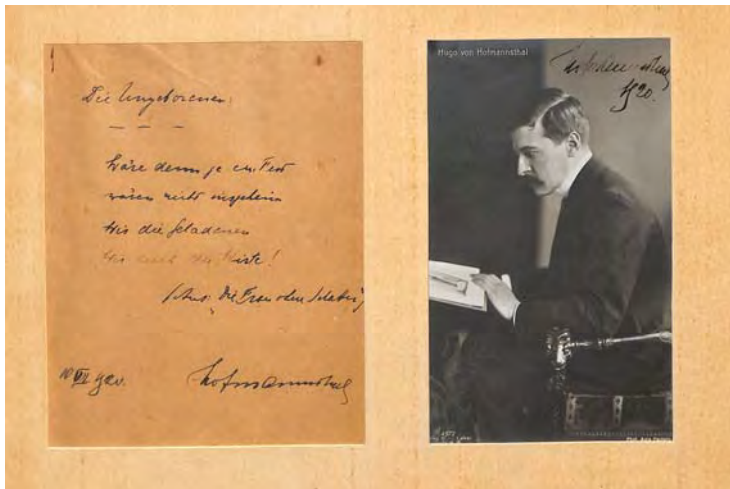 Die Ungeborenen:
— — —
Wäre denn je ein Fest
wären nicht insgeheim
Wir die Geladenen
Wir auch die Wirte!
(Aus: Die Frau ohne Schatten
10 VII 920.
Hofmannsthal
Hugo von Hofmannsthal
Hofmannsthal
1920.